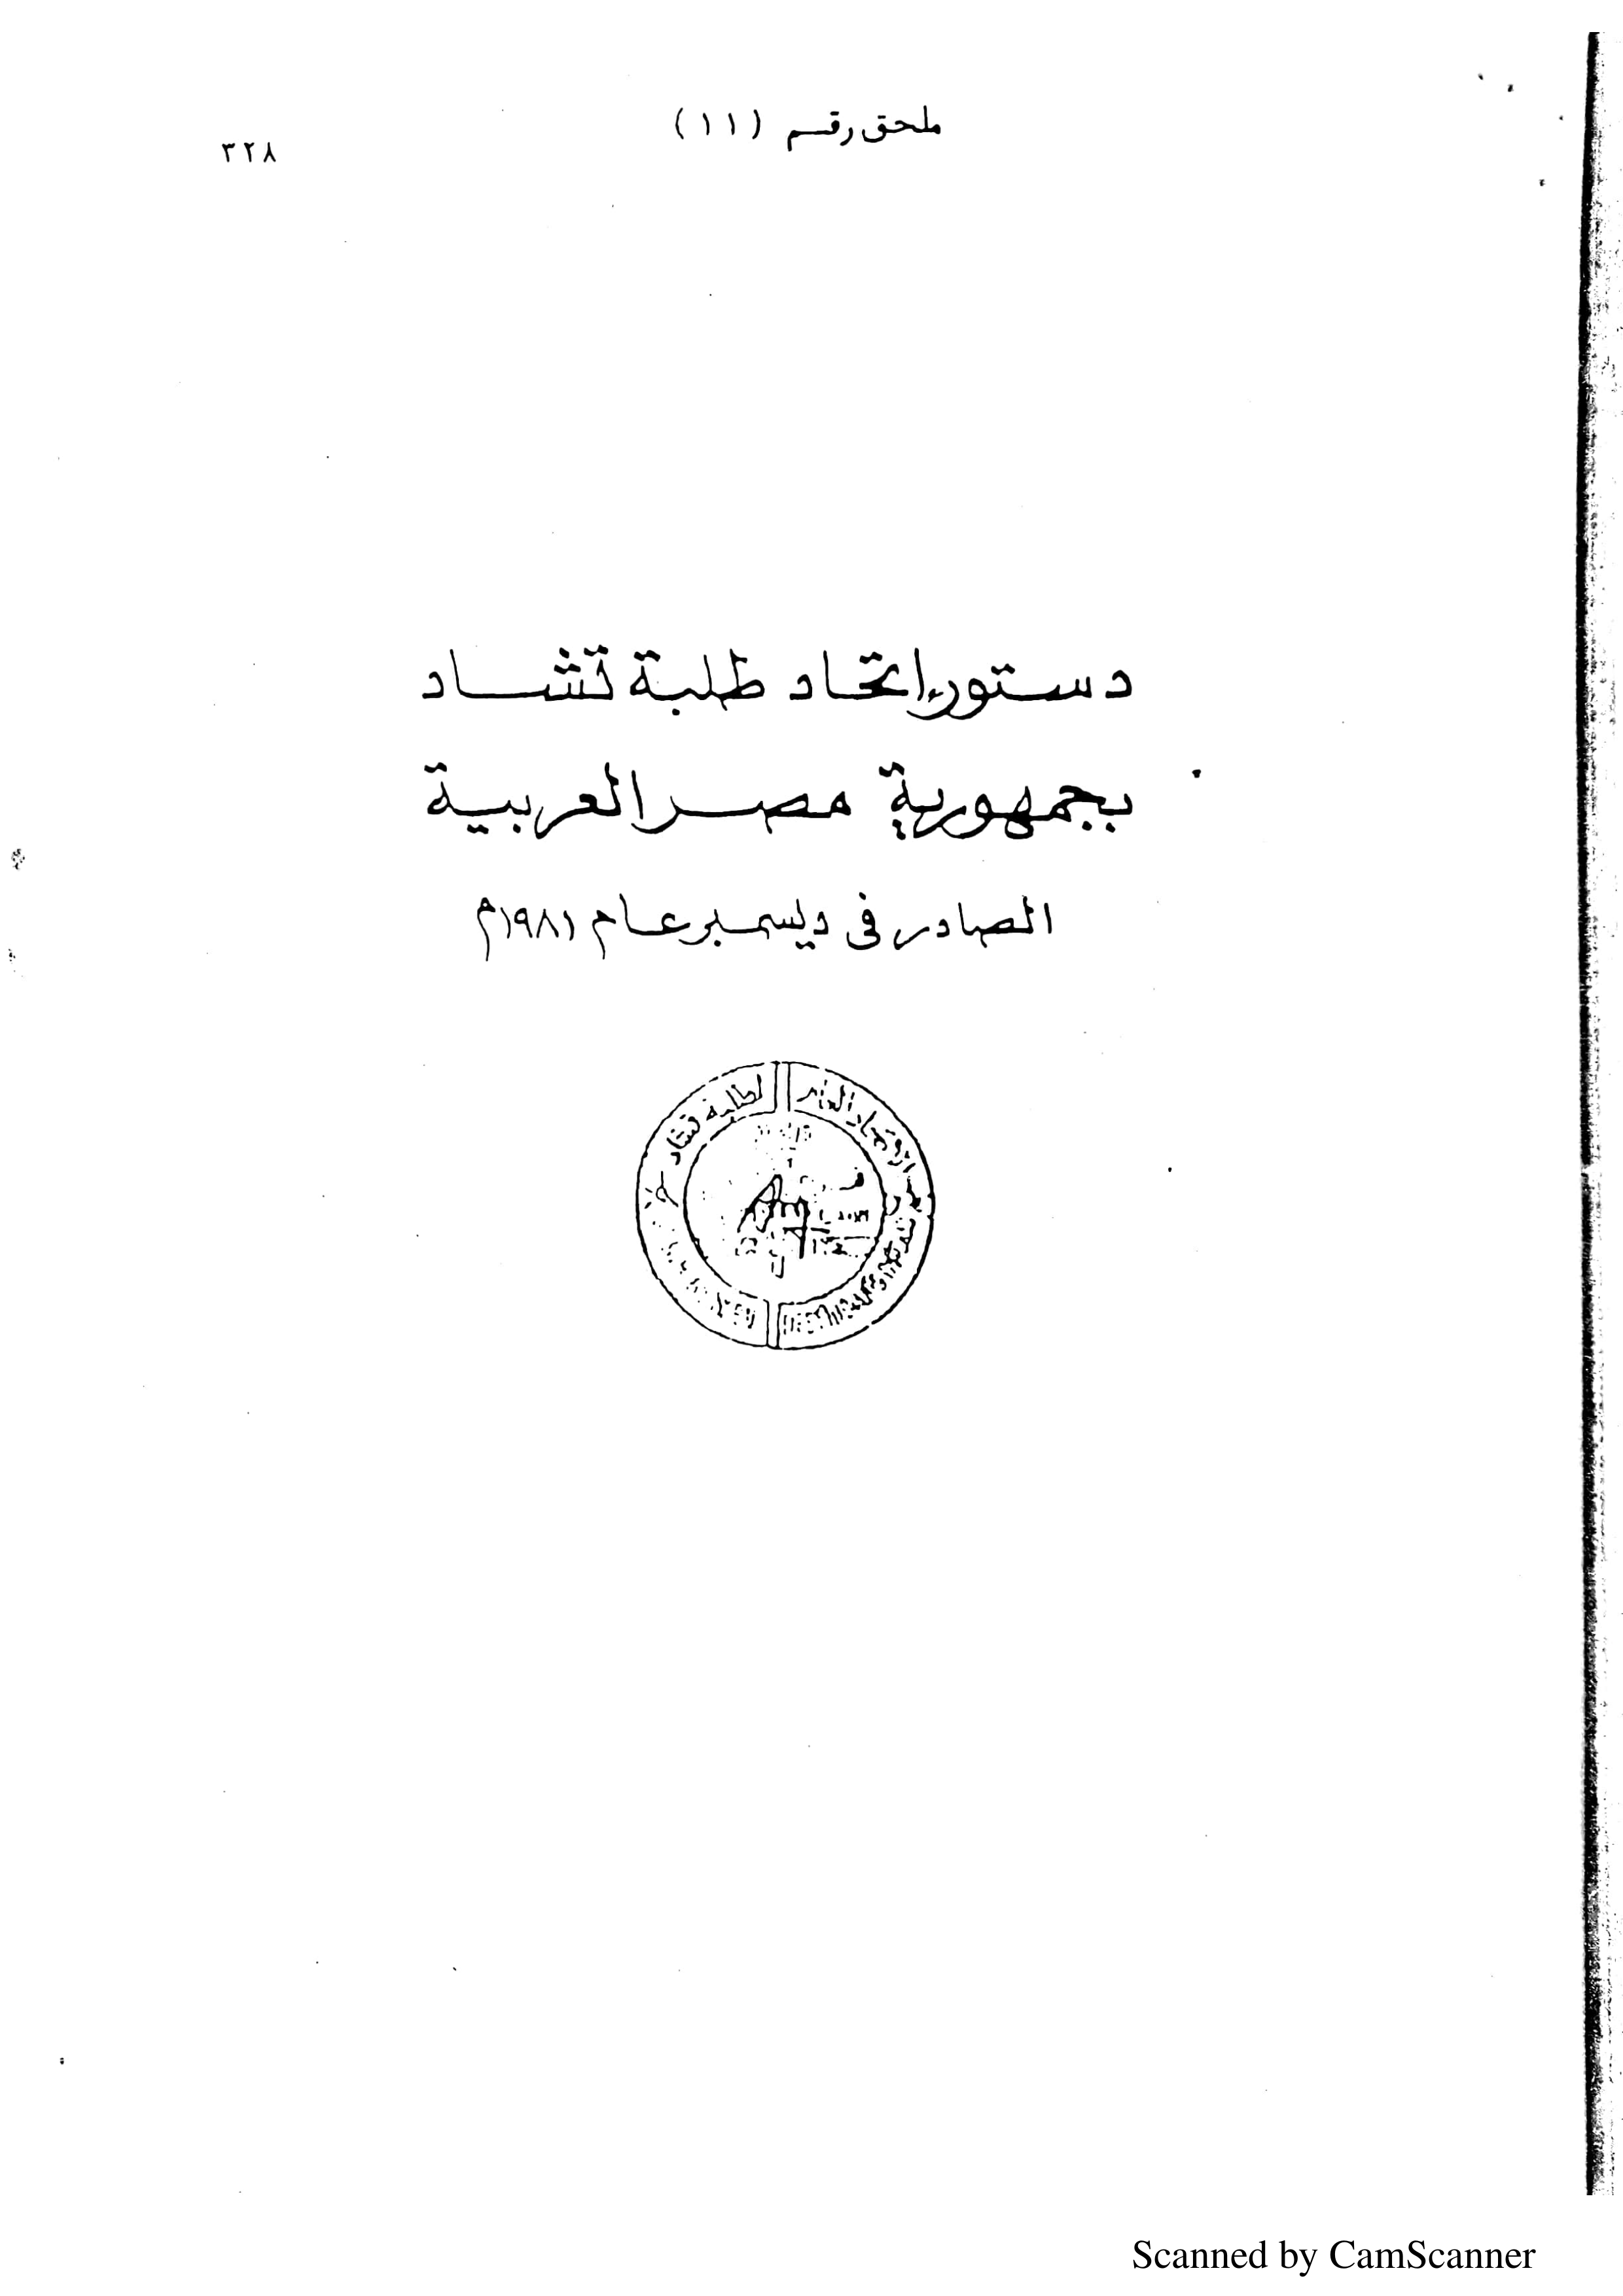 ملحق رقم (١١)
٣٢٨
دستور إتحاد طلبة تشاد
بجمهورية مصر العربية
الصادر فى ديسمبر عام ١٩٨١م
لطلبة تشاد
Scanned by CamScanner